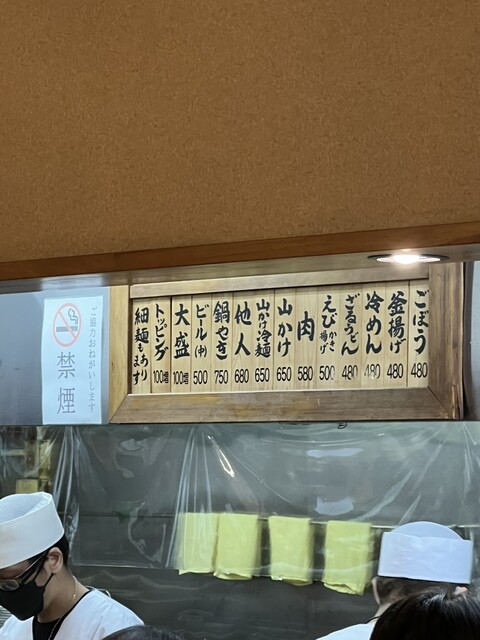 ごぼう 480
釜揚げ 480
冷めん 480
ざるうどん 480
えびかき揚げ 500
肉 580
山かけ 650
山かけ冷麺 650
他人 680
鍋やき 750
ビール(中) 500
大盛 100増
トッピング 100増
細麺もあります
ご協力おねがいします
禁煙